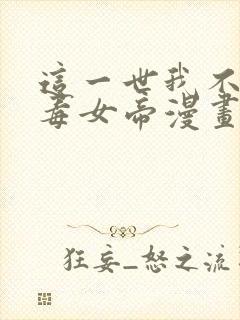 這一世我不
毒女帝漫畫
狂妄_怒之流